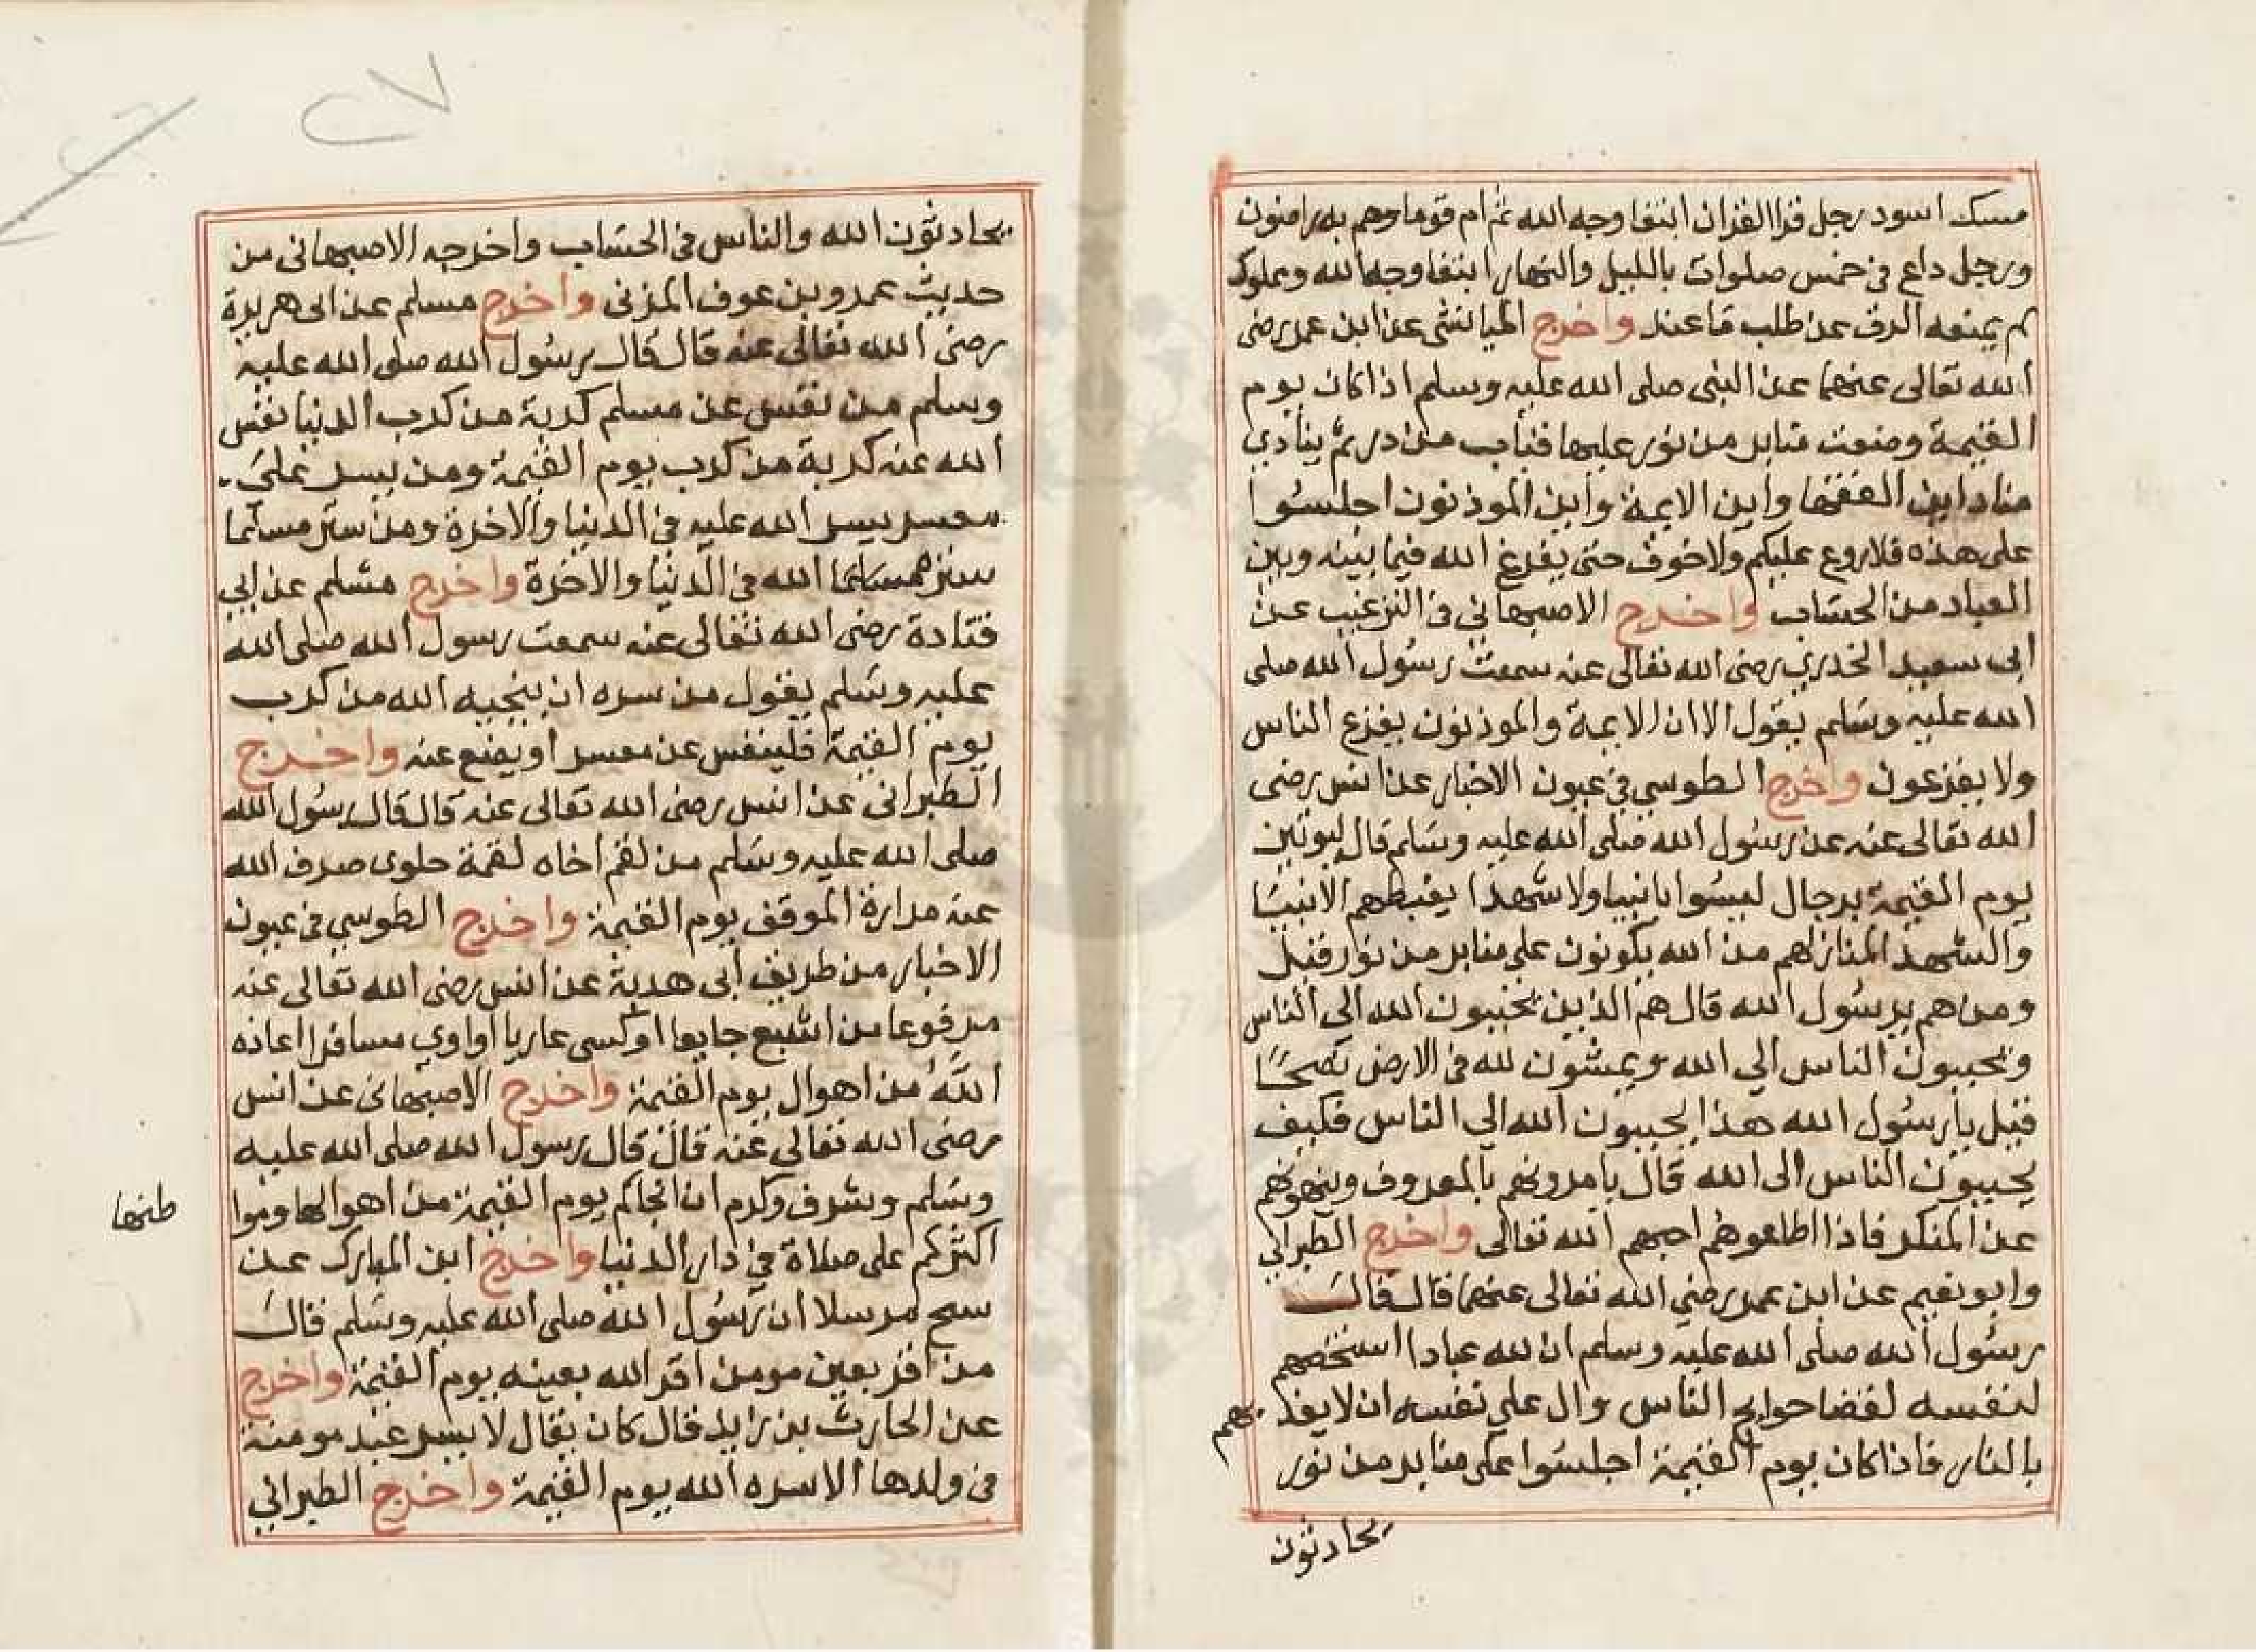 مسك اسود رجل قرا القران ابتغا وجه الله ثم ام قوما وهم به راضون
ورجل داع في خمس صلوات بالليل والنهار ابتغا وجه الله ومملوك
لم يمنعه الرق عن طلب ما عند واخرج الميانشى عن ابن عمر رضى
الله تعالى عنهما عن النبى صلى الله عليه وسلم اذا كان يوم
القيمة وضعت منابر من نور عليها قباب من در ثم ينادي
مناد اين الفقها واين الايمة واين الموذنون اجلسوا
على هذه فلا روع عليكم ولا خوف حتى يفرغ الله فيما بينه وبين
العباد من الحساب واخرج الاصبهانى فى الترغيب عن
ابى سعيد الخدري رضى الله تعالى عنه سمعت رسول الله صلى
الله عليه وسلم يقول الا ان الايمة والموذنون يفزع الناس
ولا يفزعون واخرج الطوسي في عيون الاخبار عن انس رضى
الله تعالى عنه عن رسول الله صلى الله عليه وسلم قال ليوتين
يوم القيمة برجال ليسوا بانبيا ولا شهدا يغبطهم الانبيا
والشهدا لمنازلهم من الله يكونون على منابر من نور قيل
ومن هم يرسول الله قال هم الذين يحببون الله الى الناس
ويحببون الناس الي الله ويمشون لله فى الارض نصحا
قيل يا رسول الله هذا يحببون الله الي الناس فكيف
يحببون الناس الى الله قال يامرونهم بالمعروف وينهونهم
عن المنكر فاذا اطاعوهم احبهم الله تعالى واخرج الطبراني
وابو نعيم عن ابن عمر رضي الله تعالى عنهما قال قال
رسول الله صلى الله عليه وسلم ان لله عبادا استخصهم
لنفسه لقضا حوايج الناس وال علي نفسه ان لا يعذبهم
بالنار فاذا كان يوم القيمة اجلسوا على منابر من نور
يحادثون
يحادثون الله والناس فى الحساب واخرجه الاصبهانى من
حديث عمرو بن عوف المزنى واخرج مسلم عن ابى هريرة
رضى الله تعالى عنه قال قال رسول الله صلى الله عليه
وسلم من نفس عن مسلم كربة من كرب الدنيا نفس
الله عنه كربة من كرب يوم القيمة ومن يسر على
معسر يسر الله عليه فى الدنيا والاخرة ومن ستر مسلما
ستره الله فى الدنيا والاخرة واخرج مسلم عن ابي
قتادة رضى الله تعالى عنه سمعت رسول الله صلى الله
عليه وسلم يقول من سره ان ينجيه الله من كرب
يوم القيمة فلينفس عن معسر او يضع عنه واخرج
الطبرانى عن انس رضى الله تعالى عنه قال قال رسول الله
صلى الله عليه وسلم من لقم اخاه لقمة حلوى صرف الله
عنه مرارة الموقف يوم القيمة واخرج الطوسي فى عيون
الاخبار من طريق ابى هدبة عن انس رضى الله تعالى عنه
مرفوعا من اشبع جايعا او كسى عاريا او اوي مسافرا اعاذه
الله من اهوال يوم القيمة واخرج الاصبهانى عن انس
رضى الله تعالى عنه قال قال رسول الله صلى الله عليه
وسلم وشرف وكرم ان انجاكم يوم القيمة من اهوالها وموا
طنها
اكثركم على صلاة في دار الدنيا واخرج ابن المبارك عن
مرسلا ان رسول الله صلى الله عليه وسلم قال
من اقر بعين مومن اقر الله بعينه يوم القيمة واخرج
عن الحارث بن زايد قال كان يقال لا يسر عبد مومنة
فى ولدها الا سره الله يوم القيمة واخرج الطبراني
٢٧